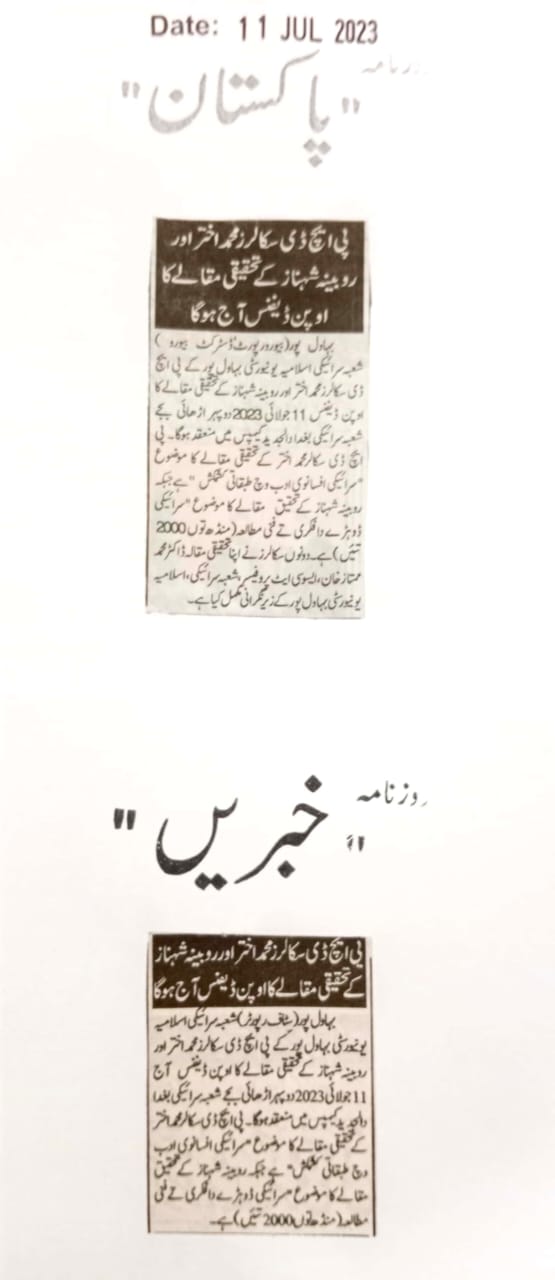 Date: 11 JUL 2023
روزنامہ
"پاکستان"
پی ایچ ڈی سکالرز محمد اختر اور
روبینہ شہناز کے تحقیقی مقالے کا
اوپن ڈیفنس آج ہوگا
بہاول پور(بیورو رپورٹ/ڈسٹرکٹ بیورو)
شعبہ سرائیکی اسلامیہ یونیورسٹی بہاول پور کے پی ایچ
ڈی سکالرز محمد اختر اور روبینہ شہناز کے تحقیقی مقالے کا
اوپن ڈیفنس 11 جولائی 2023 دوپہر اڑھائی بجے
شعبہ سرائیکی بغداد الجدید کیمپس میں منعقد ہوگا۔ پی
ایچ ڈی سکالر محمد اختر کے تحقیقی مقالے کا موضوع
"سرائیکی افسانوی ادب وچ طبقاتی کشمکش" ہے جبکہ
روبینہ شہناز کے تحقیق مقالے کا موضوع "سرائیکی
ڈوہڑے دا فکری تے فنی مطالعہ (منڈھ توں 2000
تئیں) ہے۔ دونوں سکالرز نے اپنا تحقیقی مقالہ ڈاکٹر محمد
ممتاز خان، ایسوسی ایٹ پروفیسر، شعبہ سرائیکی، اسلامیہ
یونیورسٹی بہاول پور کے زیر نگرانی مکمل کیا ہے۔
روزنامہ
"خبریں"
پی ایچ ڈی سکالرز محمد اختر اور روبینہ شہناز
کے تحقیقی مقالے کا اوپن ڈیفنس آج ہوگا
بہاول پور(سٹاف رپورٹر) شعبہ سرائیکی اسلامیہ
یونیورسٹی بہاول پور کے پی ایچ ڈی سکالرز محمد اختر اور
روبینہ شہناز کے تحقیقی مقالے کا اوپن ڈیفنس آج
11 جولائی 2023 دوپہر اڑھائی بجے شعبہ سرائیکی بغدا
دالجدید کیمپس میں منعقد ہوگا۔ پی ایچ ڈی سکالر محمد اختر
کے تحقیقی مقالے کا موضوع "سرائیکی افسانوی ادب
وچ طبقاتی کشمکش" ہے جبکہ روبینہ شہناز کے تحقیق
مقالے کا موضوع "سرائیکی ڈوہڑے دا فکری تے فنی
مطالعہ (منڈھ توں 2000 تئیں) ہے۔